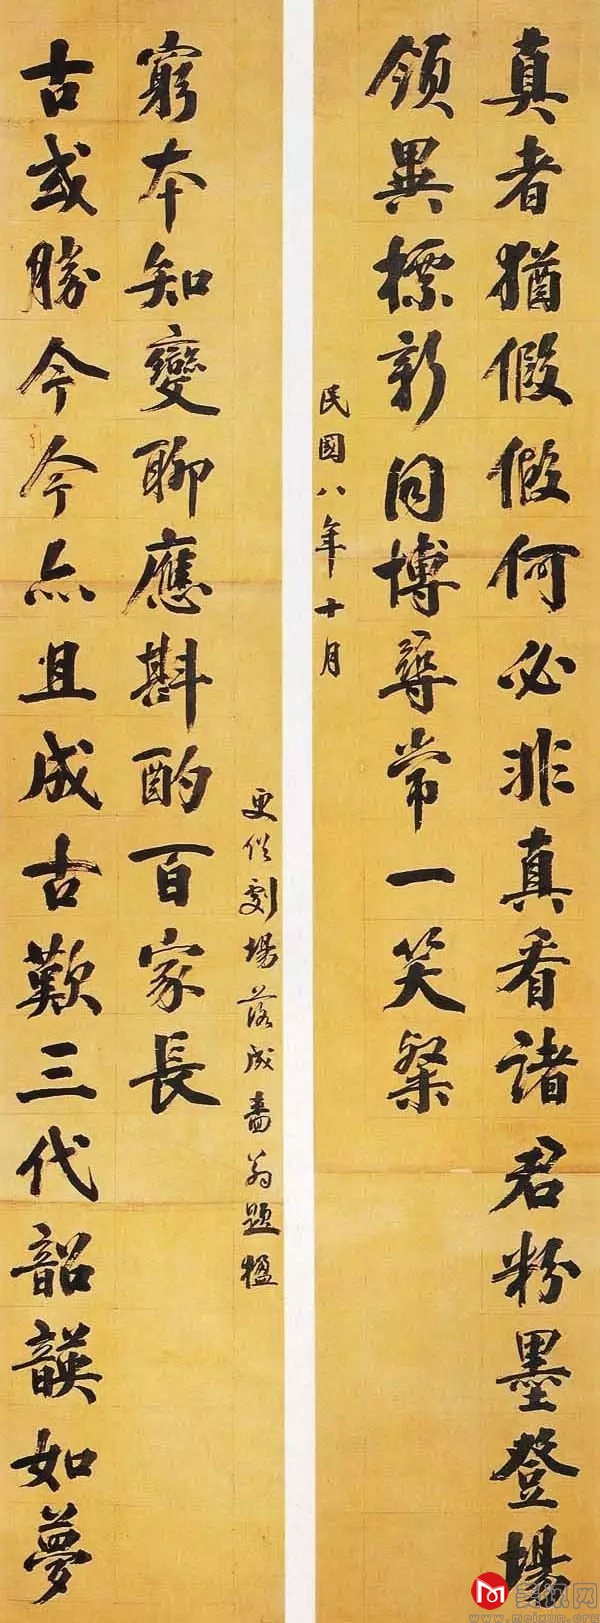 真者猶假假何必非真看諸君粉墨登場
領異標新同博尋常一笑粲
民國八年十月
古或勝今今亦且成古歎三代韶韺如夢
窮本知變聊應斟酌百家長
更俗劇場落成嗇翁題楹
www.meixun.org